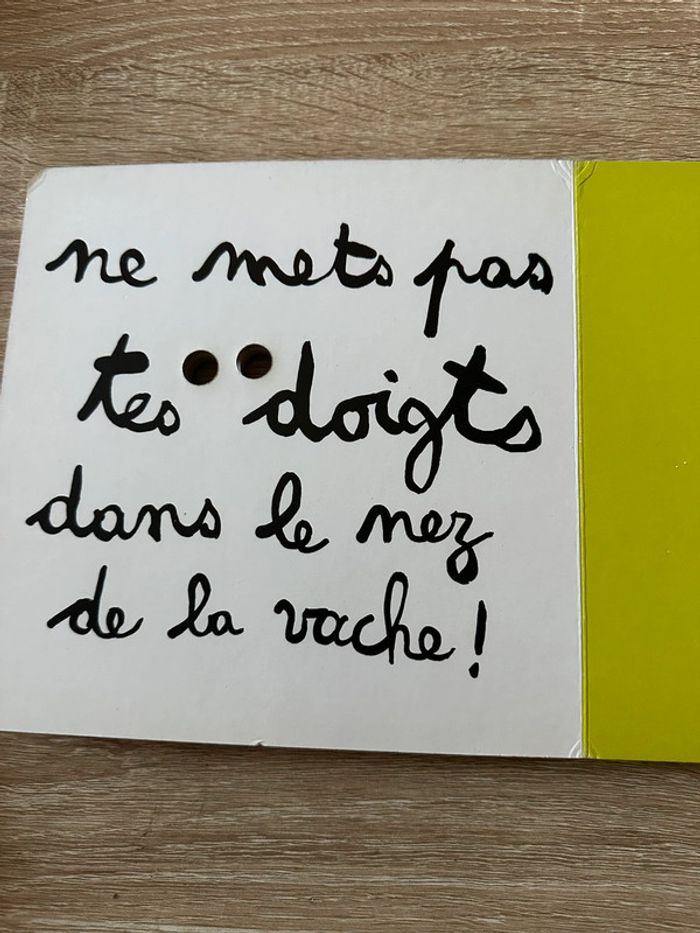 ne mets pas
tes doigts
dans le nez
de la vache!